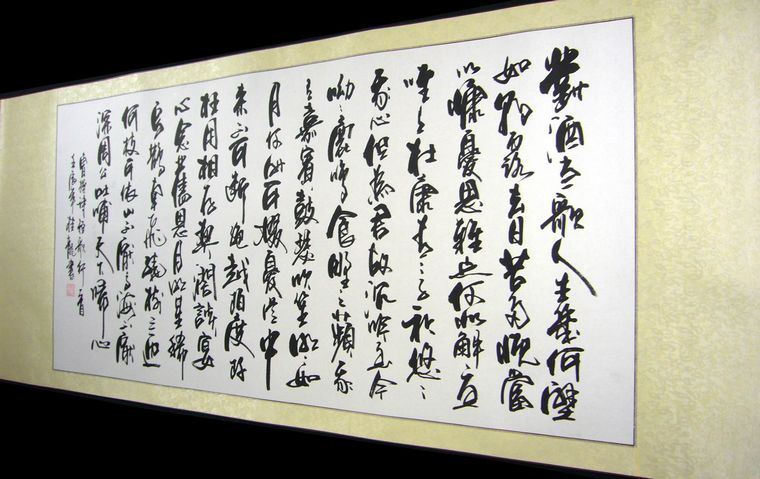 對酒當歌人生幾何譬
如朝露去日苦多慨當
以慷憂思難忘何以解憂
唯有杜康青〻子衿悠〻
我心但為君故沉吟至今
呦〻鹿鳴食野之蘋我
有嘉賓鼓瑟吹笙明〻如
月何時可掇憂從中
來不可斷絕越陌度阡
枉用相存契闊談宴
心念舊恩月明星稀
烏鵲南飛繞樹三匝
何枝可依山不厭高海不厭
深周公吐哺天下歸心
曹操詩短歌行一首
龍書